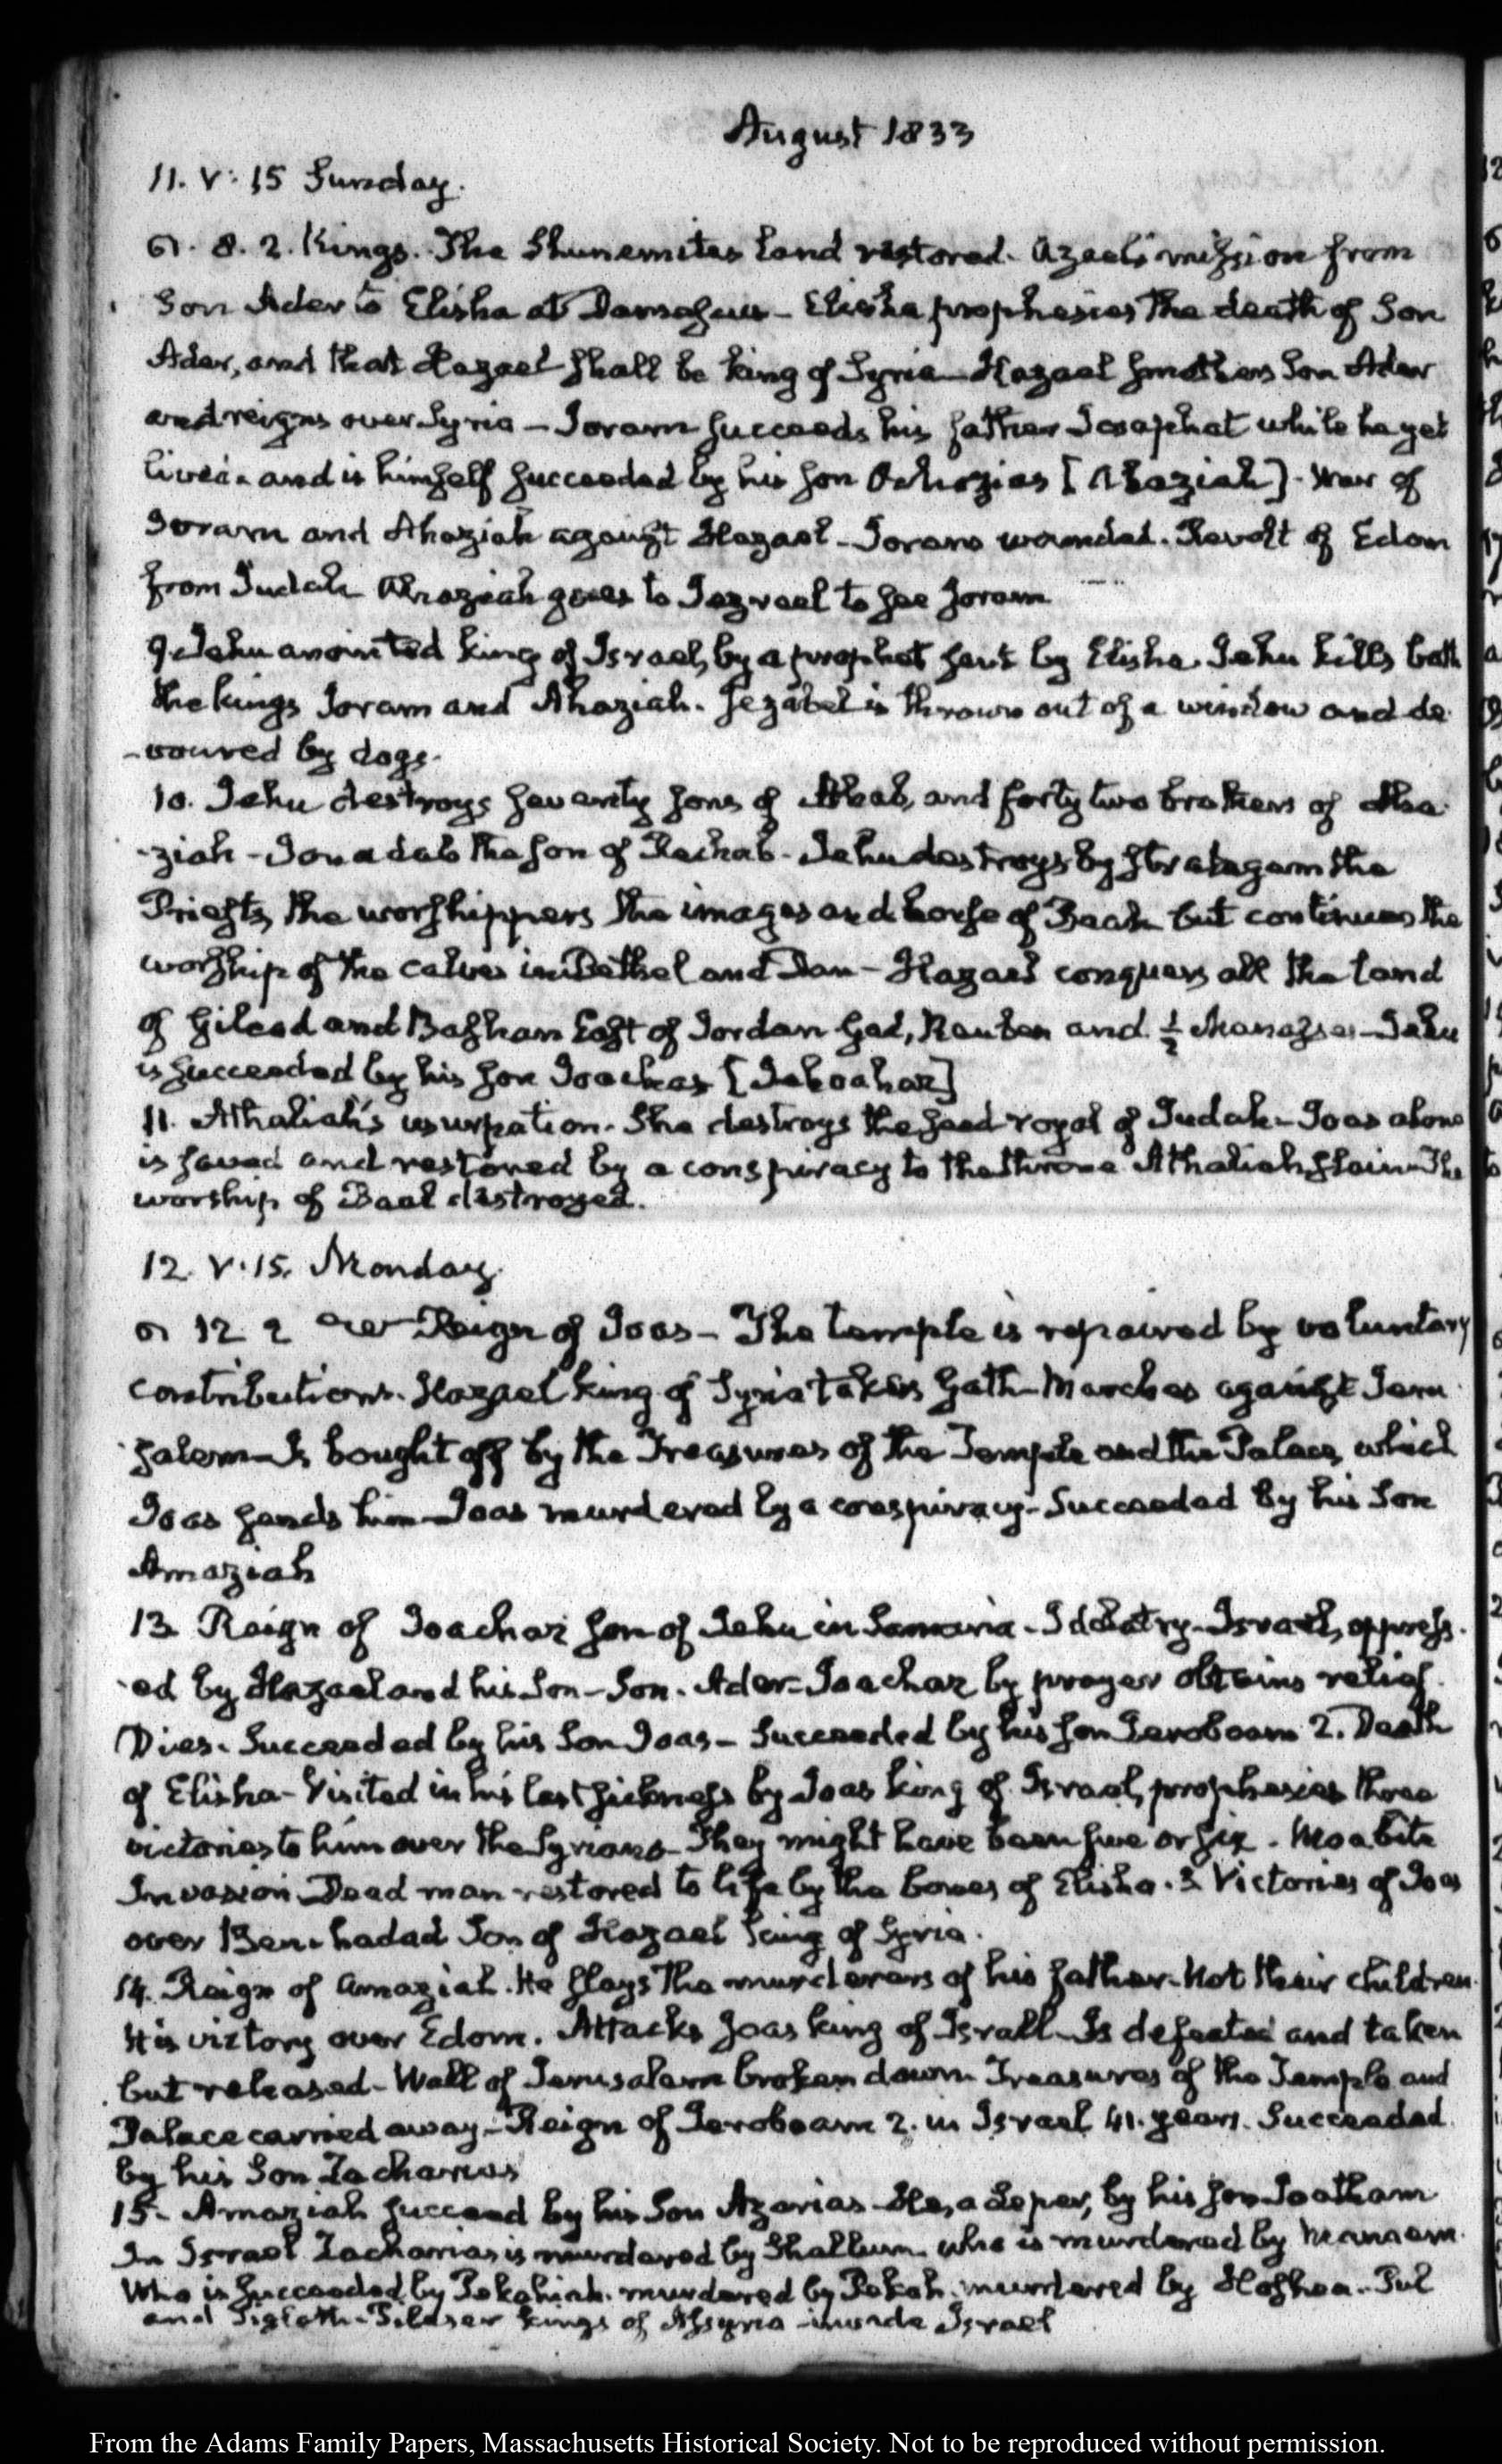 August 1833
11. V: 15 Sunday.
8. 2. Kings. The Shunemites land restored. Azael's mission from
Son Ader to Elisha at Damascus - Elisha prophesies the death of Son
Ader, and that Hazael shall be king of Syria - Hazael smothers Son Ader
and reigns over Syria - Joram succeeds his father Josaphat while he yet
lived. and is himself succeeded by his son Ochozias [Ahaziah]. War of
Joram and Ahaziah against Hazael - Joram wounded. Revolt of Edom
from Judah Ahaziah goes to Jezreel to see Joram
9. Jehu anointed king of Israel, by a prophet sent by Elisha. Jehu kills both
the kings Joram and Ahaziah. Jezabel is thrown out of a window and de
-voured by dogs.
10. Jehu destroys seventy sons of Ahab, and forty two brothers of Aha
-ziah - Jonadab the son of Rechab - Jehu destroys by stratagem the
Priests, the worshippers the images and house of Baal, but continues the
worship of the calves in Bethel and Dan - Hazael conquers all the land
of Gilead and Bashan East of Jordan Gad, Reuben and ½ Manasses - Jehu
is succeeded by his son Joachas [Jehoahaz]
11. Athaliah's usurpation. She destroys the seed royal of Judah - Joas alone
is saved and restored by a conspiracy to the throne Athaliah slain - The
worship of Baal destroyed.
12. V. 15. Monday.
12 2 Reign of Joas - The temple is repaired by voluntary
contributions. Hazael king of Syria takes Gath - Marches against Jeru
-salem - Is bought off by the Treasures of the Temple and the Palace, which
Joas sends him - Joas murdered by a conspiracy - Succeeded by his Son
Amaziah
13. Reign of Joachaz son of Jehu in Samaria - Idolatry - Israel, oppress
-ed by Hazael and his Son - Son. Ader - Joachaz by prayer obtains relief.
Dies. Succeeded by his Son Joas - Succeeded by his son Jeroboam 2. Death
of Elisha - Visited in his last sickness by Joas king of Israel, prophesies three
victories to him over the Syrians - They might have been five or six. Moabite
Invasion Dead man restored to life by the bones of Elisha. 3 Victories of Joas
over Ben-hadad Son of Hazael king of Syria.
14. Reign of Amaziah. He slays the murderers of his father - Not their children.
His victory over Edom. Attacks Joas king of Israel - Is defeated and taken
but released - Wall of Jerusalem broken down Treasures of the Temple and
Palace carried away - Reign of Jeroboam 2. in Israel 41. years. Succeeded
by his Son Zacharias
15. Amaziah succeed by his Son Azarias - He, a leper, by his son Joatham
In Israel Zacharias is murdered by Shallum who is murdered by Manaem.
Who is succeeded by Pekahiah. murdered by Pekah. murdered by Hoshea. Pul
and Tiglath-Pileser kings of Assyria invade Israel
From the Adams Family Papers, Massachusetts Historical Society. Not to be reproduced without permission.